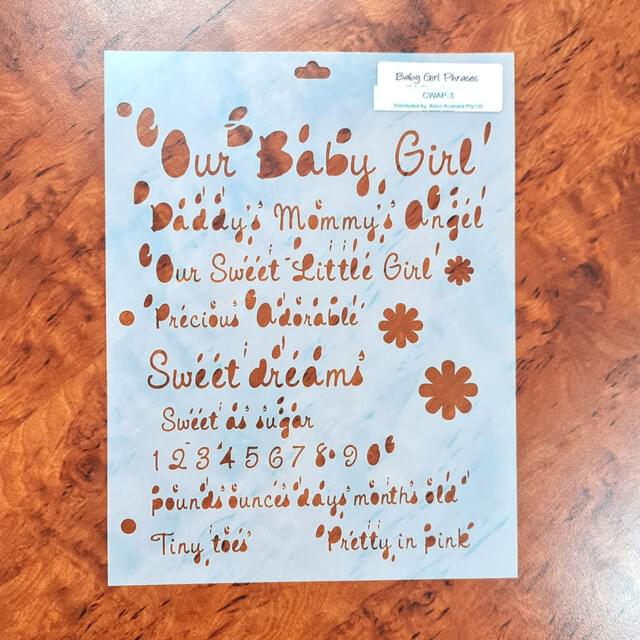 Baby Girl Phrases
CWAP-3
Distributed by Alisos Australia Pty Ltd
Our Baby Girl
Daddy's Mommy's Angel
Our Sweet Little Girl
Precious Adorable
Sweet dreams
Sweet as sugar
1 2 3 4 5 6 7 8 9 0
pounds ounces days months old
Tiny toes Pretty in pink